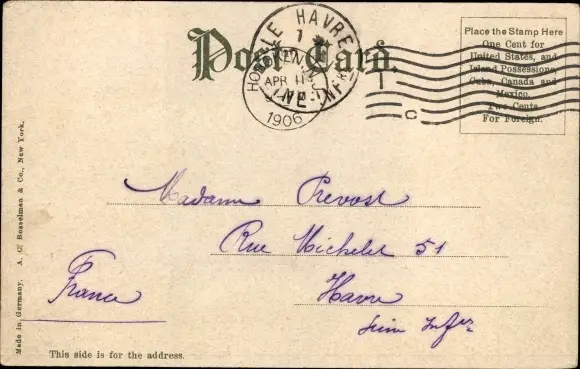 Post Card.
Place the Stamp Here
One Cent for
United States, and
Island Possessions,
Cuba, Canada and
Mexico.
Two Cents
For Foreign.
LE HAVRE
HOBOKEN, N.J.
APR 11
1906
C
Madame Prevost
Rue Michelet 51
Havre
Seine Infre
France
This side is for the address.
Made in Germany. A. C. Bosselman & Co., New York.